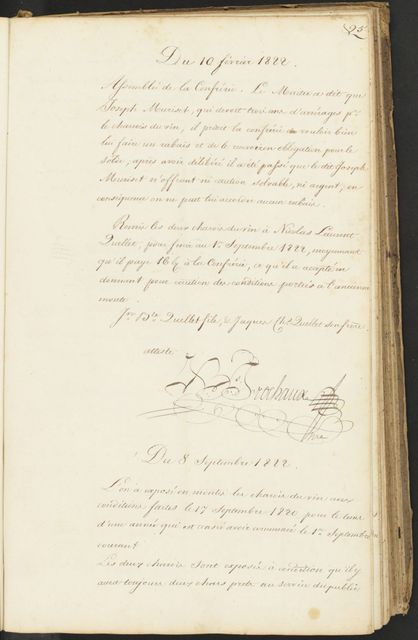 25
Du 10 février 1822.
Assemblée de la Confrérie. Le Maitre a dit que
Joseph Muriset, qui devoit trois ans d'arrérages pr.
le charrois du vin, il prioit la confrérie de vouloir bien
lui faire un rabais et de le recevoir en obligation pour le
solde, après avoir délibéré il a été passé que le dit Joseph
Muriset n'offrant ni caution solvable, ni argent, en
conséquence on ne peut lui accorder aucun rabais.
Remis les deux charois du vin à Nicolas Laurent
Quellet, pour finir au 1r. Septembre 1822, moyennant
qu'il paye 16 à la Confrérie, ce qu'il a accepté en
donnant pour caution des conditions portées à l'ancienne
monte.
Jn. Bte. Quellet fils, & Jaques Chs. Quellet son frère.
atteste
Frochaux
Du 8 Septembre 1822.
L'on a exposé en montes les charois du vin aux
conditions faites le 17 Septembre 1820 pour le terme
d'une année qui est censé avoir commencé le 1r. Septembre
courant
Les deux charois sont exposés à condition qu'il y
aura toujours deux chars prets au service du public